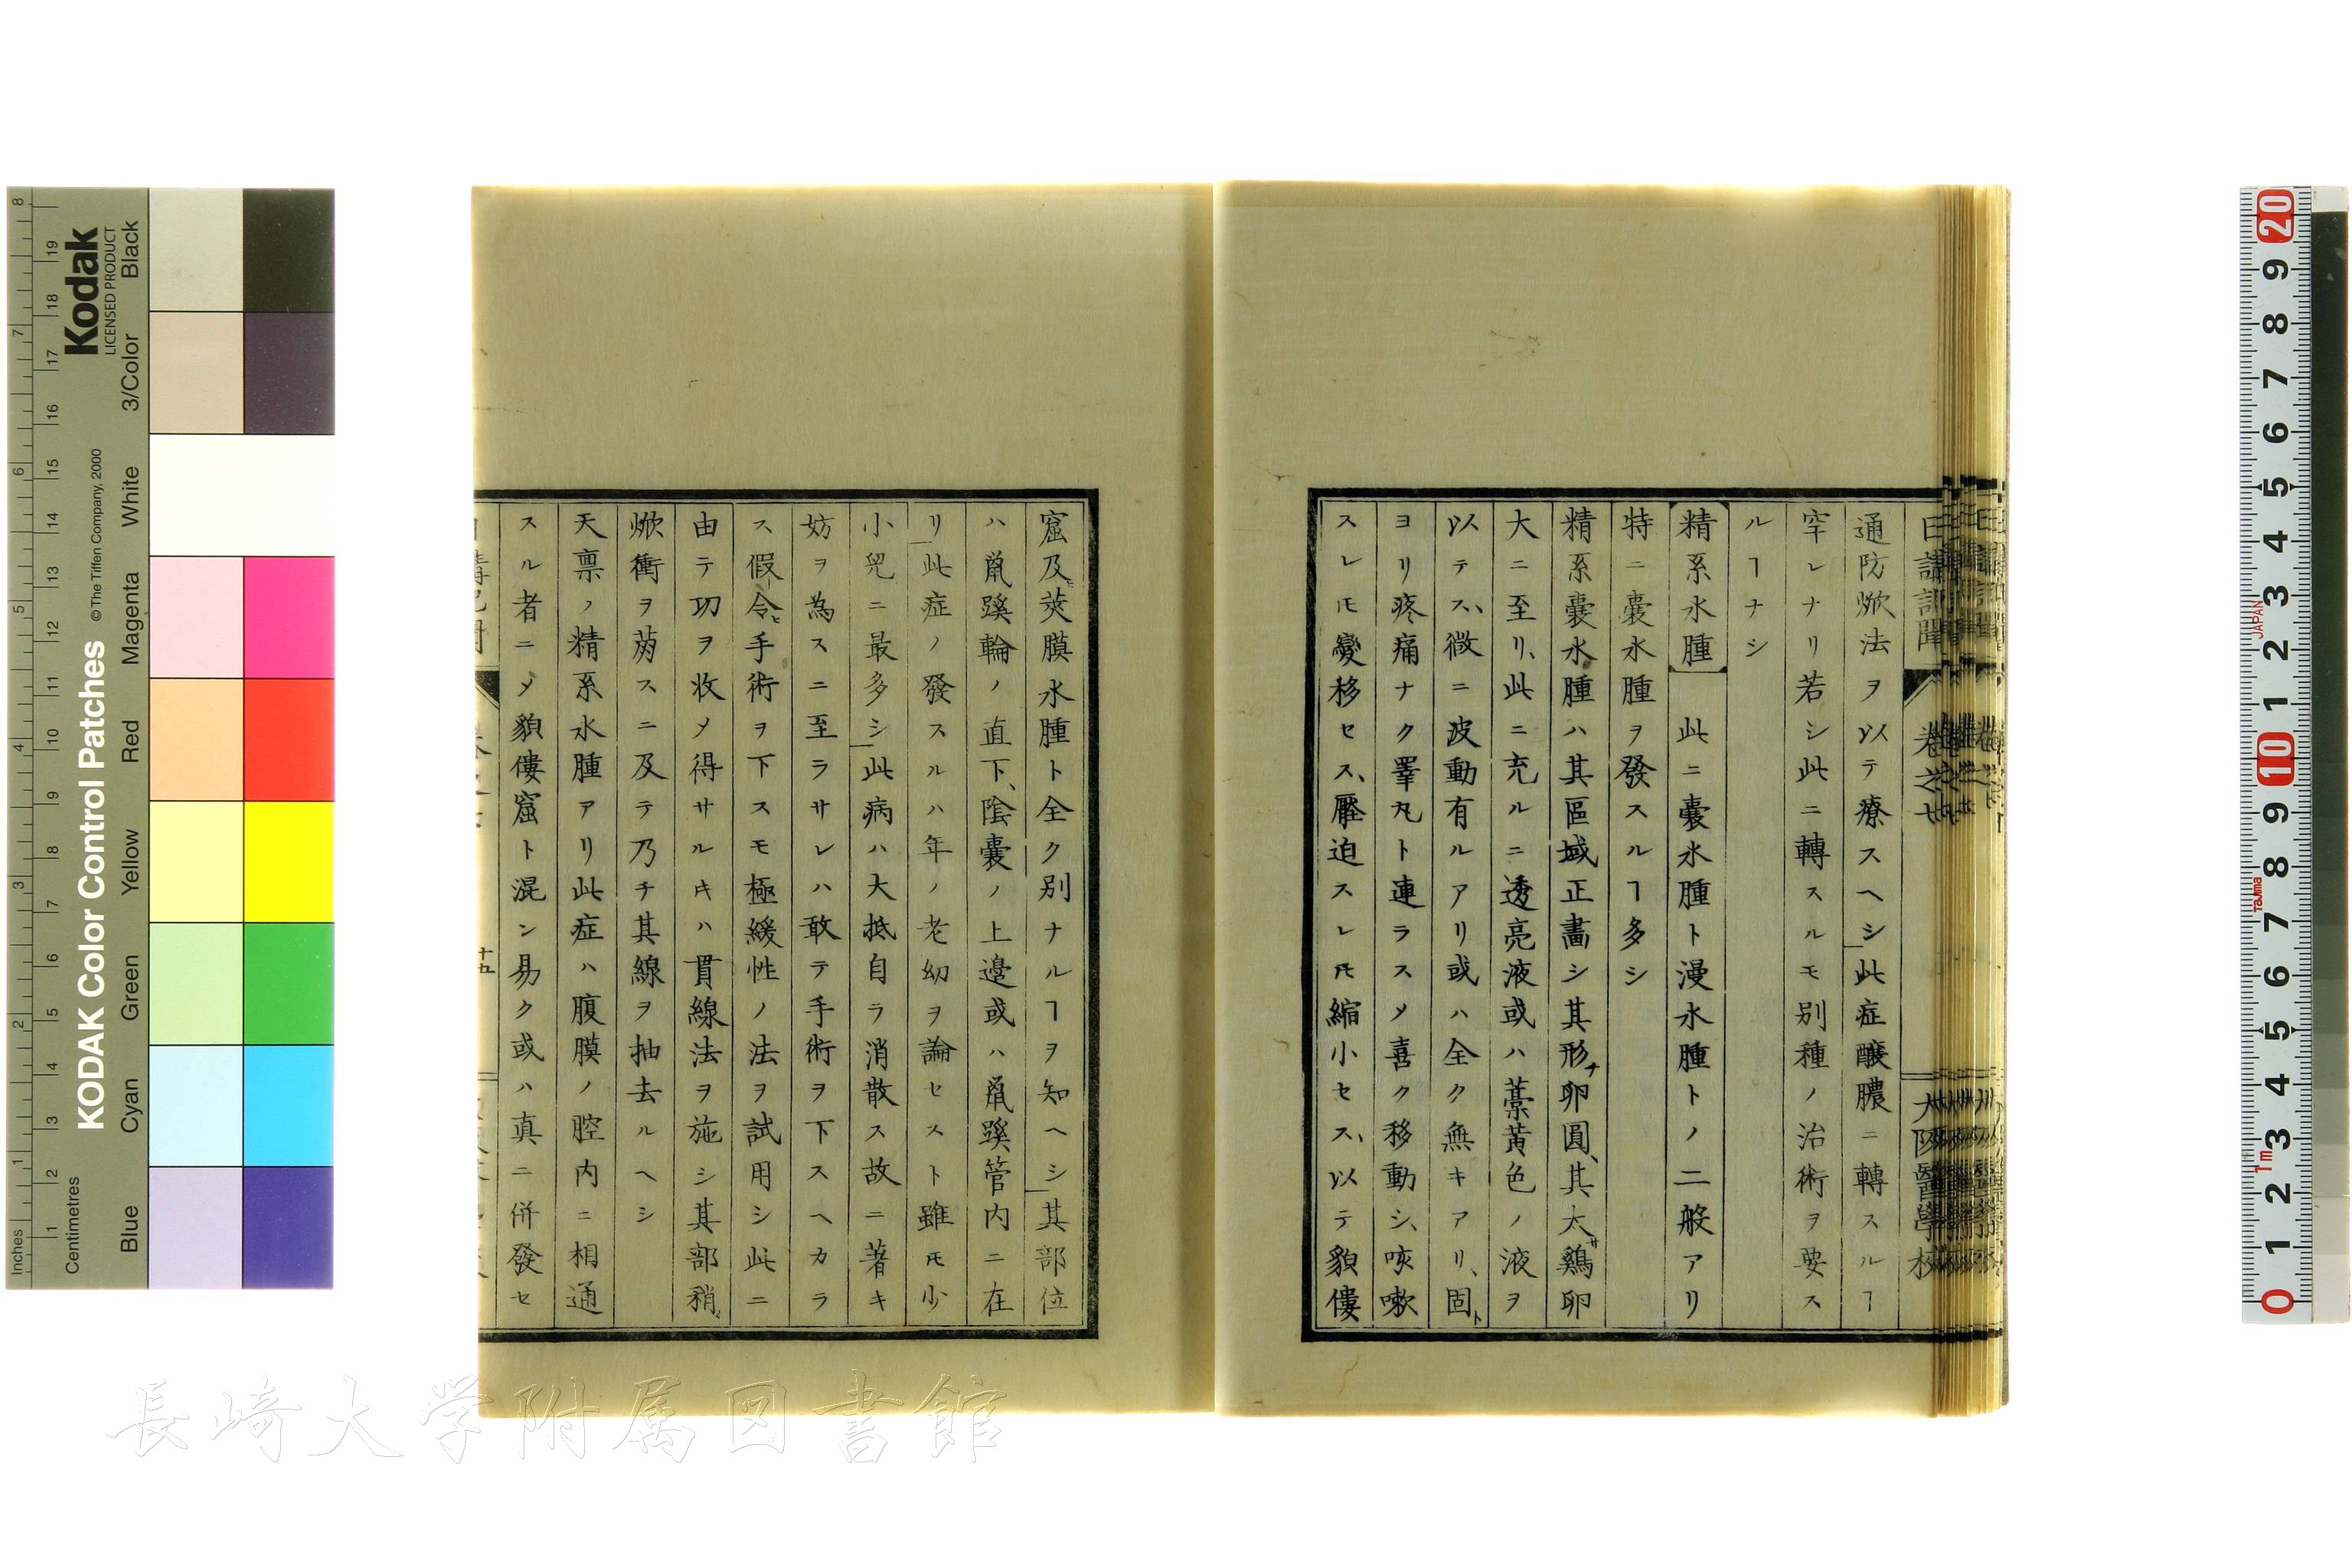 日講記聞 卷之七 大阪醫學校
通防焮法ヲ以テ療スヘシ此症釀膿ニ轉スルヿ
罕レナリ若シ此ニ轉スルモ別種ノ治術ヲ要ス
ルヿナシ
精系水腫 此ニ囊水腫ト漫水腫トノ二般アリ
特ニ囊水腫ヲ發スルヿ多シ
精系囊水腫ハ其區域正畵シ其形チ卵圓、其大サ鷄卵
大ニ至リ、此ニ充ルニ透亮液或ハ藁黃色ノ液ヲ
以テス、微ニ波動有ルアリ或ハ全ク無キアリ、固ト
ヨリ疼痛ナク睪丸ト連ラスメ喜ク移動シ、咳嗽
スレ𪜈變移セス、壓迫スレ𪜈縮小セス、以テ貌僂
窟及ヒ莢膜水腫ト全ク別ナルヿヲ知ヘシ其部位
ハ鼠蹊輪ノ直下、陰囊ノ上邊或ハ鼠蹊管内ニ在
リ此症ノ發スルハ年ノ老幼ヲ論セスト雖𪜈少
小兒ニ最多シ此病ハ大抵自ラ消散ス故ニ著キ
妨ヲ為スニ至ラサレハ敢テ手術ヲ下スヘカラ
ス假令ヒ手術ヲ下スモ極緩性ノ法ヲ試用シ此ニ
由テ功ヲ收メ得サルキハ貫線法ヲ施シ其部稍
焮衝ヲ萠スニ及テ乃チ其線ヲ抽去ルヘシ
天禀ノ精系水腫アリ此症ハ腹膜ノ腔内ニ相通
スル者ニメ貌僂窟ト混ン易ク或ハ真ニ併發セ
十五
長崎大学附属図書館
KODAK Color Control Patches
© The Tiffen Company, 2000
Kodak
LICENSED PRODUCT
Inches
Centimetres
Blue Cyan Green Yellow Red Magenta White 3/Color Black
JAPAN
Tajima
1m